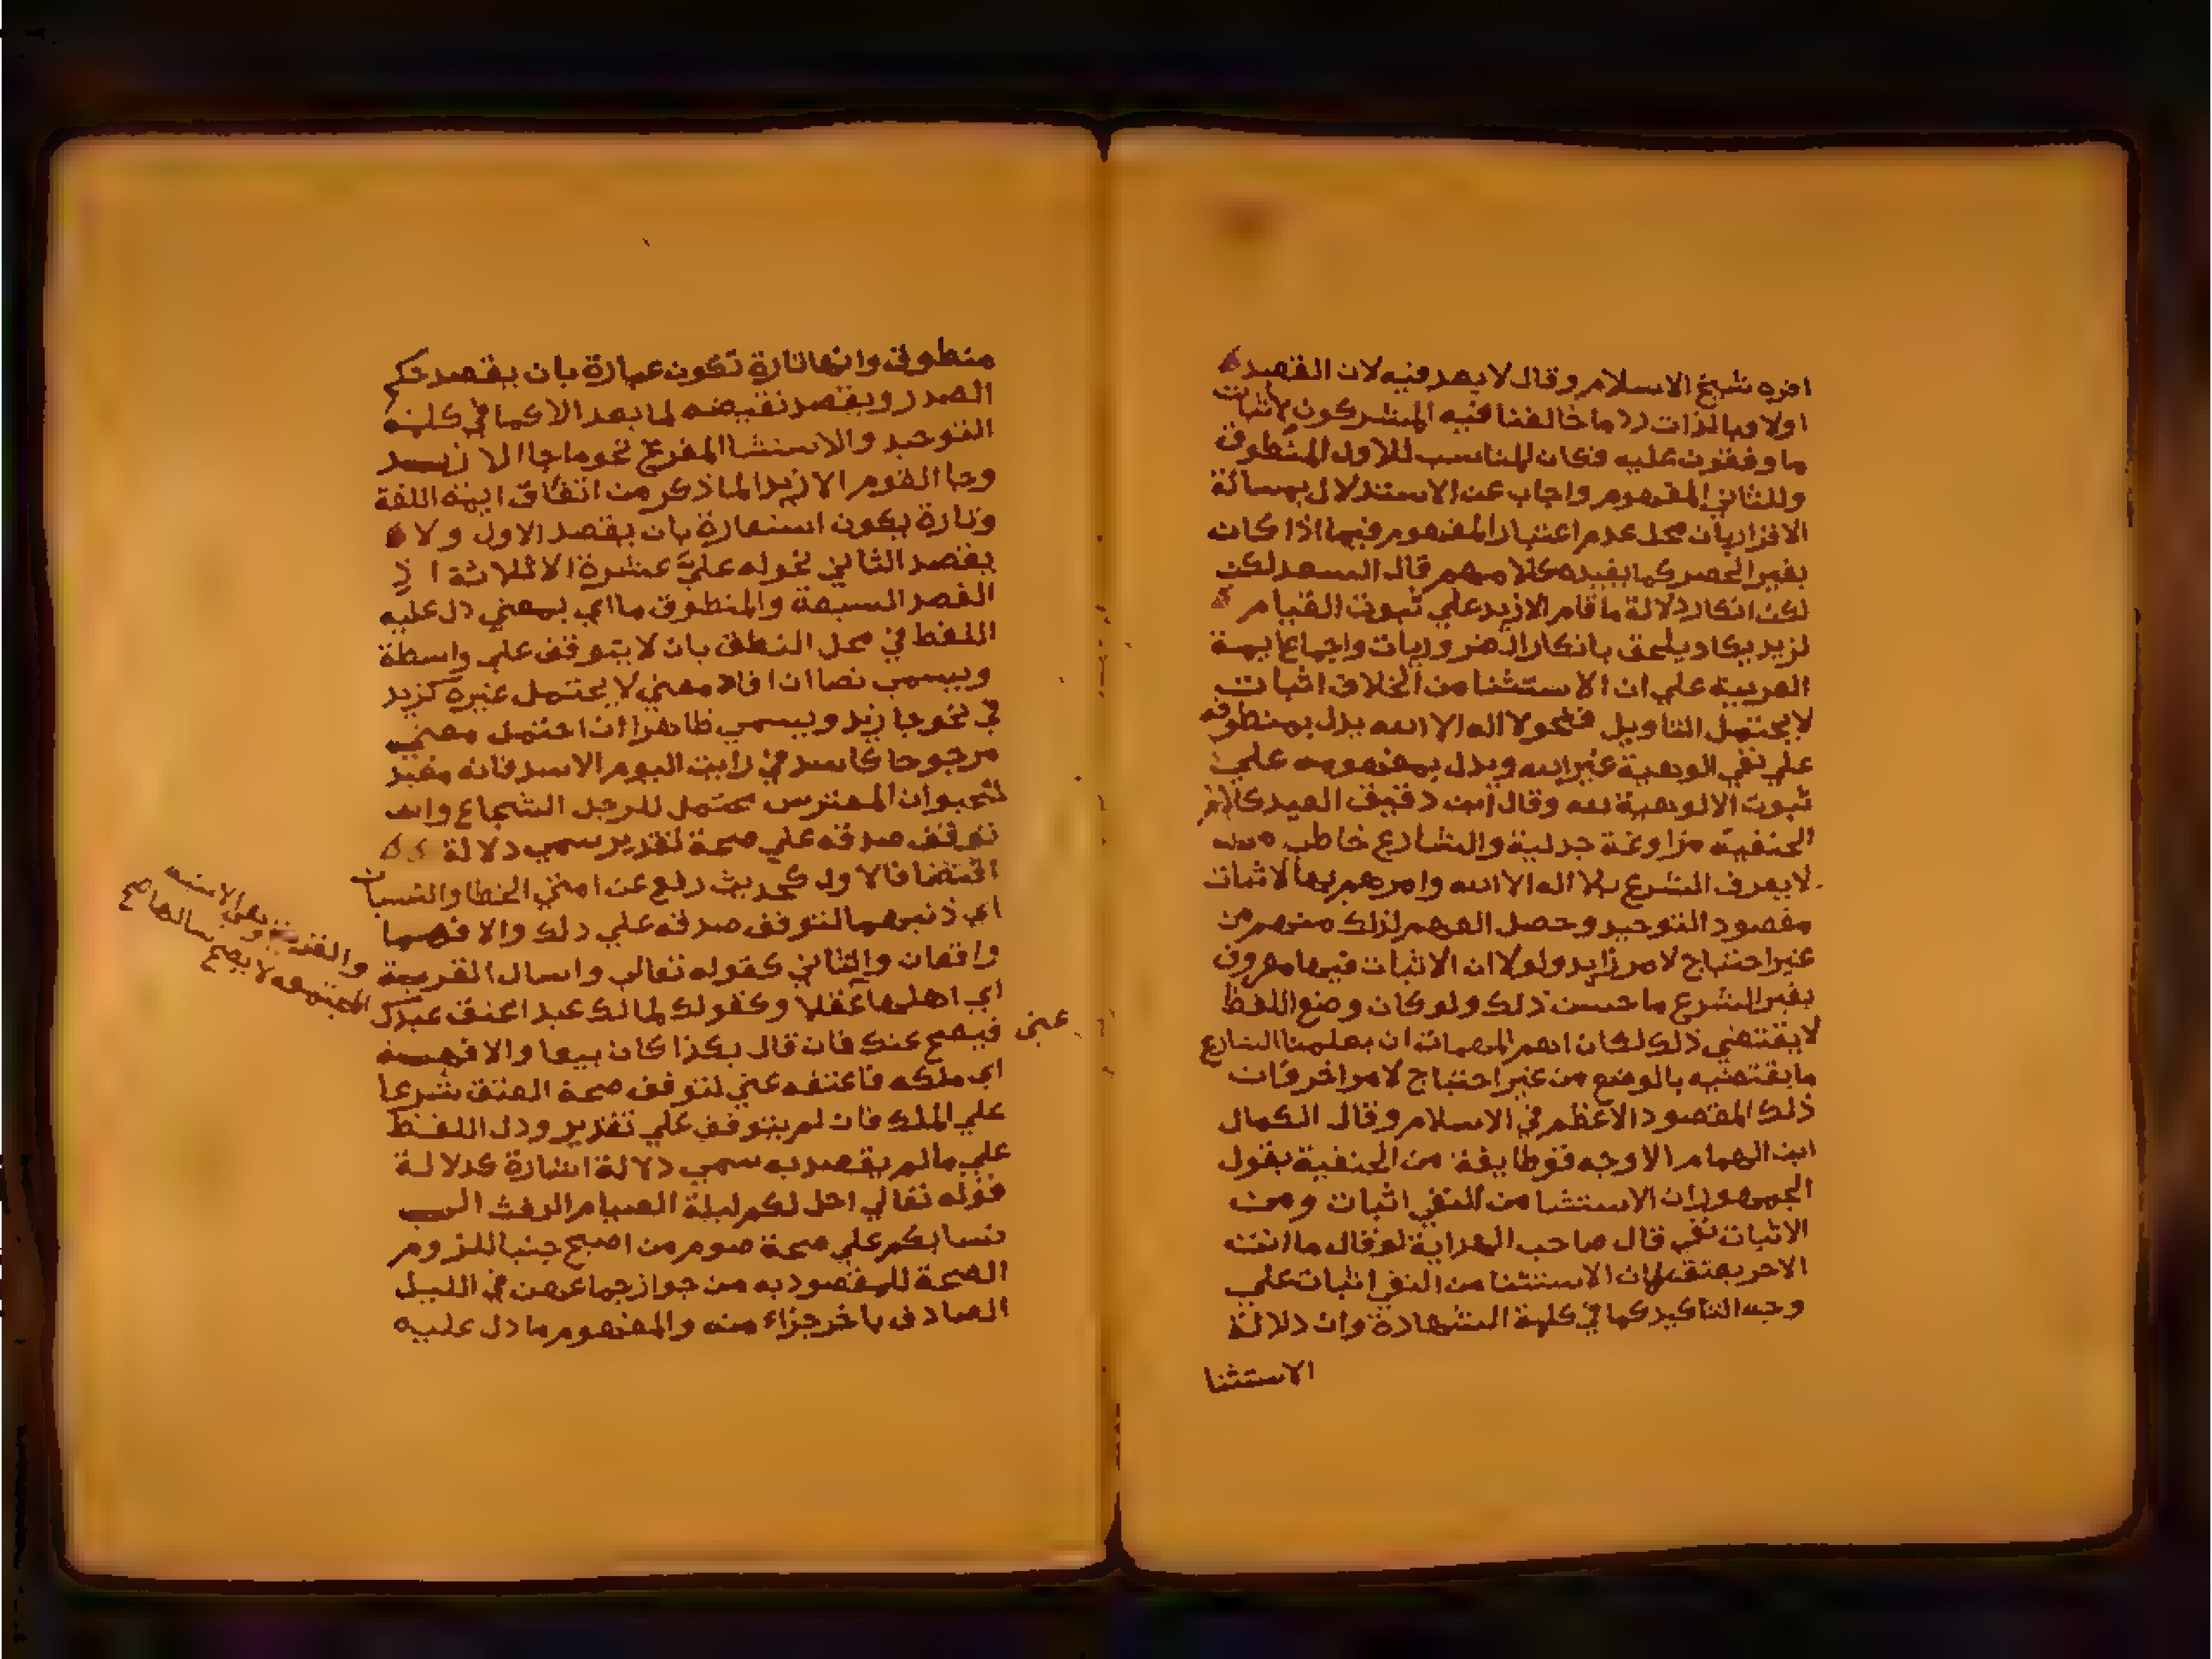 اقره شيخ الاسلام وقال لا بعد فيه لان القصد
اولا وبالذات رد ما خالفنا فيه المشركون لا اثبات
ما وفقون عليه فكان المناسب للاول المنطوق
وللثاني المفهوم واجاب عن الاستدلال بمسالة
الاقرار بان محل عدم اعتبار المفهوم فيما اذا كان
بغير الحصر كما يفيده كلامهم قال السعد لكن
لكن انكار دلالة ما قام الا زيد علي ثبوت القيام
لزيد يكاد يلحق بانكار الضروريات واجماع ايمة
العربية علي ان الاستثنا من الخلاف اثبات
لا يحتمل التاويل فنحو لا اله الا الله يدل بمنطوقه
علي نفي الوهية غير الله ويدل بمفهومه علي
ثبوت الالوهية لله وقال ابن دقيق العيد كلام
الحنفية مراوغة جدلية والشارع خاطب من
لا يعرف الشرع بلا اله الا الله وامرهم بها لاثبات
مقصود التوحيد وحصل الفهم لذلك منهم من
غير احتياج لامر زايد ولولا ان الاثبات فيها معروف
بغير الشرع ما حسن ذلك ولو كان وضع اللفظ
لا يقتضي ذلك لكان اهم المهمات ان يعلمنا الشارع
ما يقتضيه بالوضع من غير احتياج لامر اخر فان
ذلك المقصود الاعظم في الاسلام وقال الكمال
ابن الهمام الاوجه قول طايفة من الحنفية بقول
الجمهور ان الاستثنا من النفي اثبات ومن
الاثبات نفي قال صاحب الهداية لو قال ما انت
الا حر يعتق لان الاستثنا من النفي اثبات علي
وجه التاكيد كما في كلمة الشهادة وان دلالة
الاستثنا
منطوق وانها تارة تكون عبارة بان يقصد حكم
الصدر ويقصد نقيضه لما بعد الا كما في كلمة
التوحيد والاستثنا المفرغ نحو ما جا الا زيد
وجا القوم الا زيدا لما ذكر من اتفاق ايمة اللغة
وتارة يكون استعارة بان يقصد الاول ولا
يقصد الثاني نحو له علي عشرة الا ثلاثة اذ
القصد السبعة والمنطوق ما اي بمعني دل عليه
اللفظ في محل النطق بان لا يتوقف علي واسطة
ويسمي نصا ان افاد معني لا يحتمل غيره كزيد
في نحو جا زيد ويسمي ظاهرا ان احتمل معني
مرجوحا كاسد في رايت اليوم الاسد فانه مفيد
للحيوان المفترس محتمل للرجل الشجاع وان
توقف صدقه علي صحة تقدير سمي دلالة
اقتضا فالاول كحديث رفع عن امتي الخطا والنسيان
اي ذنبهما لتوقف صدقه علي ذلك والا فهما
واقعان والثاني كقوله تعالي واسال القرية
اي اهلها عقلا وكقولك لمالك عبد اعتق عبدك
عني
فيصح عنك فان قال بكذا كان بيعا والا فهبة
اي ملكه فاعتقه عني لتوقف صحة العتق شرعا
علي الملك فان لم يتوقف علي تقدير ودل اللفظ
علي ما لم يقصد به سمي دلالة اشارة كدلالة
قوله تعالي احل لكم ليلة الصيام الرفث الي
نسايكم علي صحة صوم من اصبح جنبا للزوم
الصحة للمقصود به من جواز جماعهن في الليل
الصادق باخر جزاء منه والمفهوم ما دل عليه
المجتمعه لا يصح